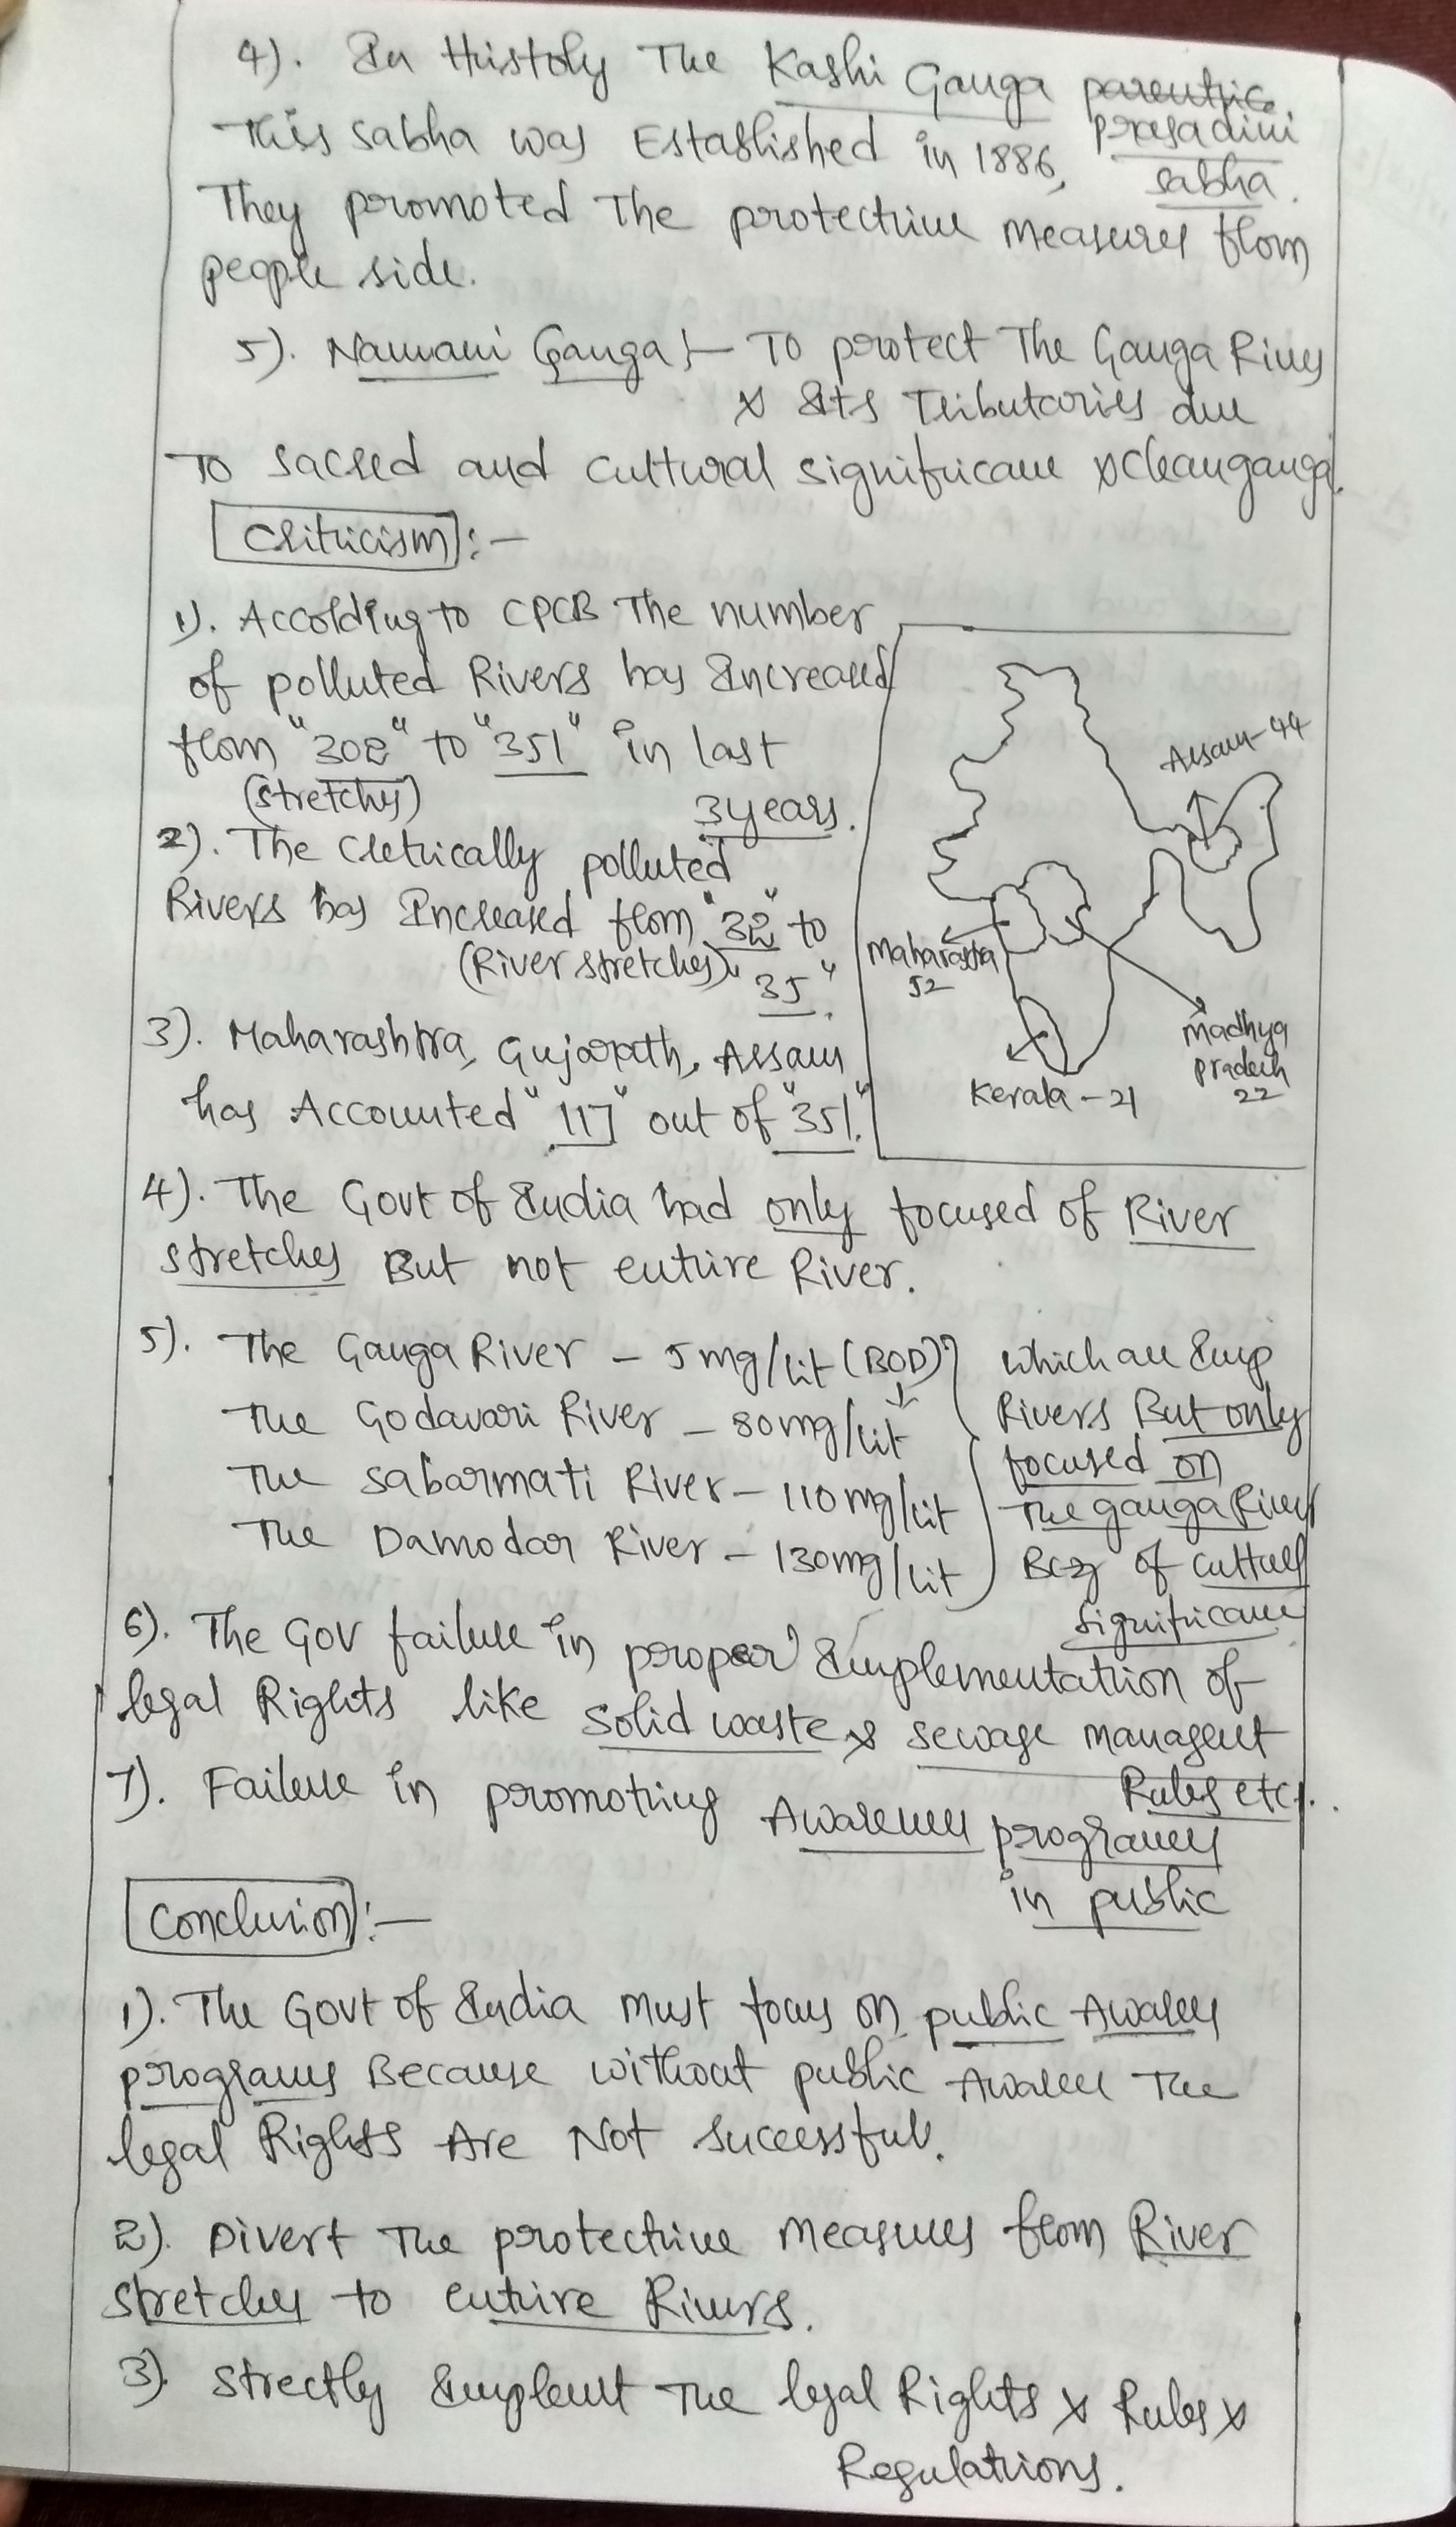 4). In Histoly The Kashi Ganga parentric
prasadini
sabha.
This sabha was Established in 1886,
They promoted The protective measures from
people side.
5). Namami Ganga :- To protect The Ganga River
& Its Tributories due
To sacred and cultural significance & cleanganga.
Criticism :-
1). According to CPCB The number
of polluted Rivers has Increased
from "302" to "351" in last
(stretches) 3 years.
2). The Cletrically polluted
Rivers has Increased from "32" to
(River stretches) "35".
3). Maharashtra, Gujarath, Assam
has Accounted "117" out of "351".
Assam - 44
Maharastra
52
Madhya
pradesh
22
Kerala - 21
4). The Govt of India had only focused of River
stretches But not entire River.
5). The Ganga River - 5 mg/lit (BOD)
The Godavari River - 80mg/lit
The Sabarmati River - 110 mg/lit
The Damodar River - 130mg/lit
which are Imp
Rivers But only
focused on
The ganga River
Bcz of cultural
significance
6). The Gov failure in proper Implementation of
legal Rights like solid waste & sewage managent
Rules etc..
7). Failure in promoting Awareness programes
in public
Conclusion :-
1). The Govt of India must focus on public Awarness
programs Because without public Awarness The
legal Rights Are Not successful.
2). Divert The protective measures from River
stretches to entire Rivers.
3). Strectly Implement The legal Rights & Rules &
Regulations.